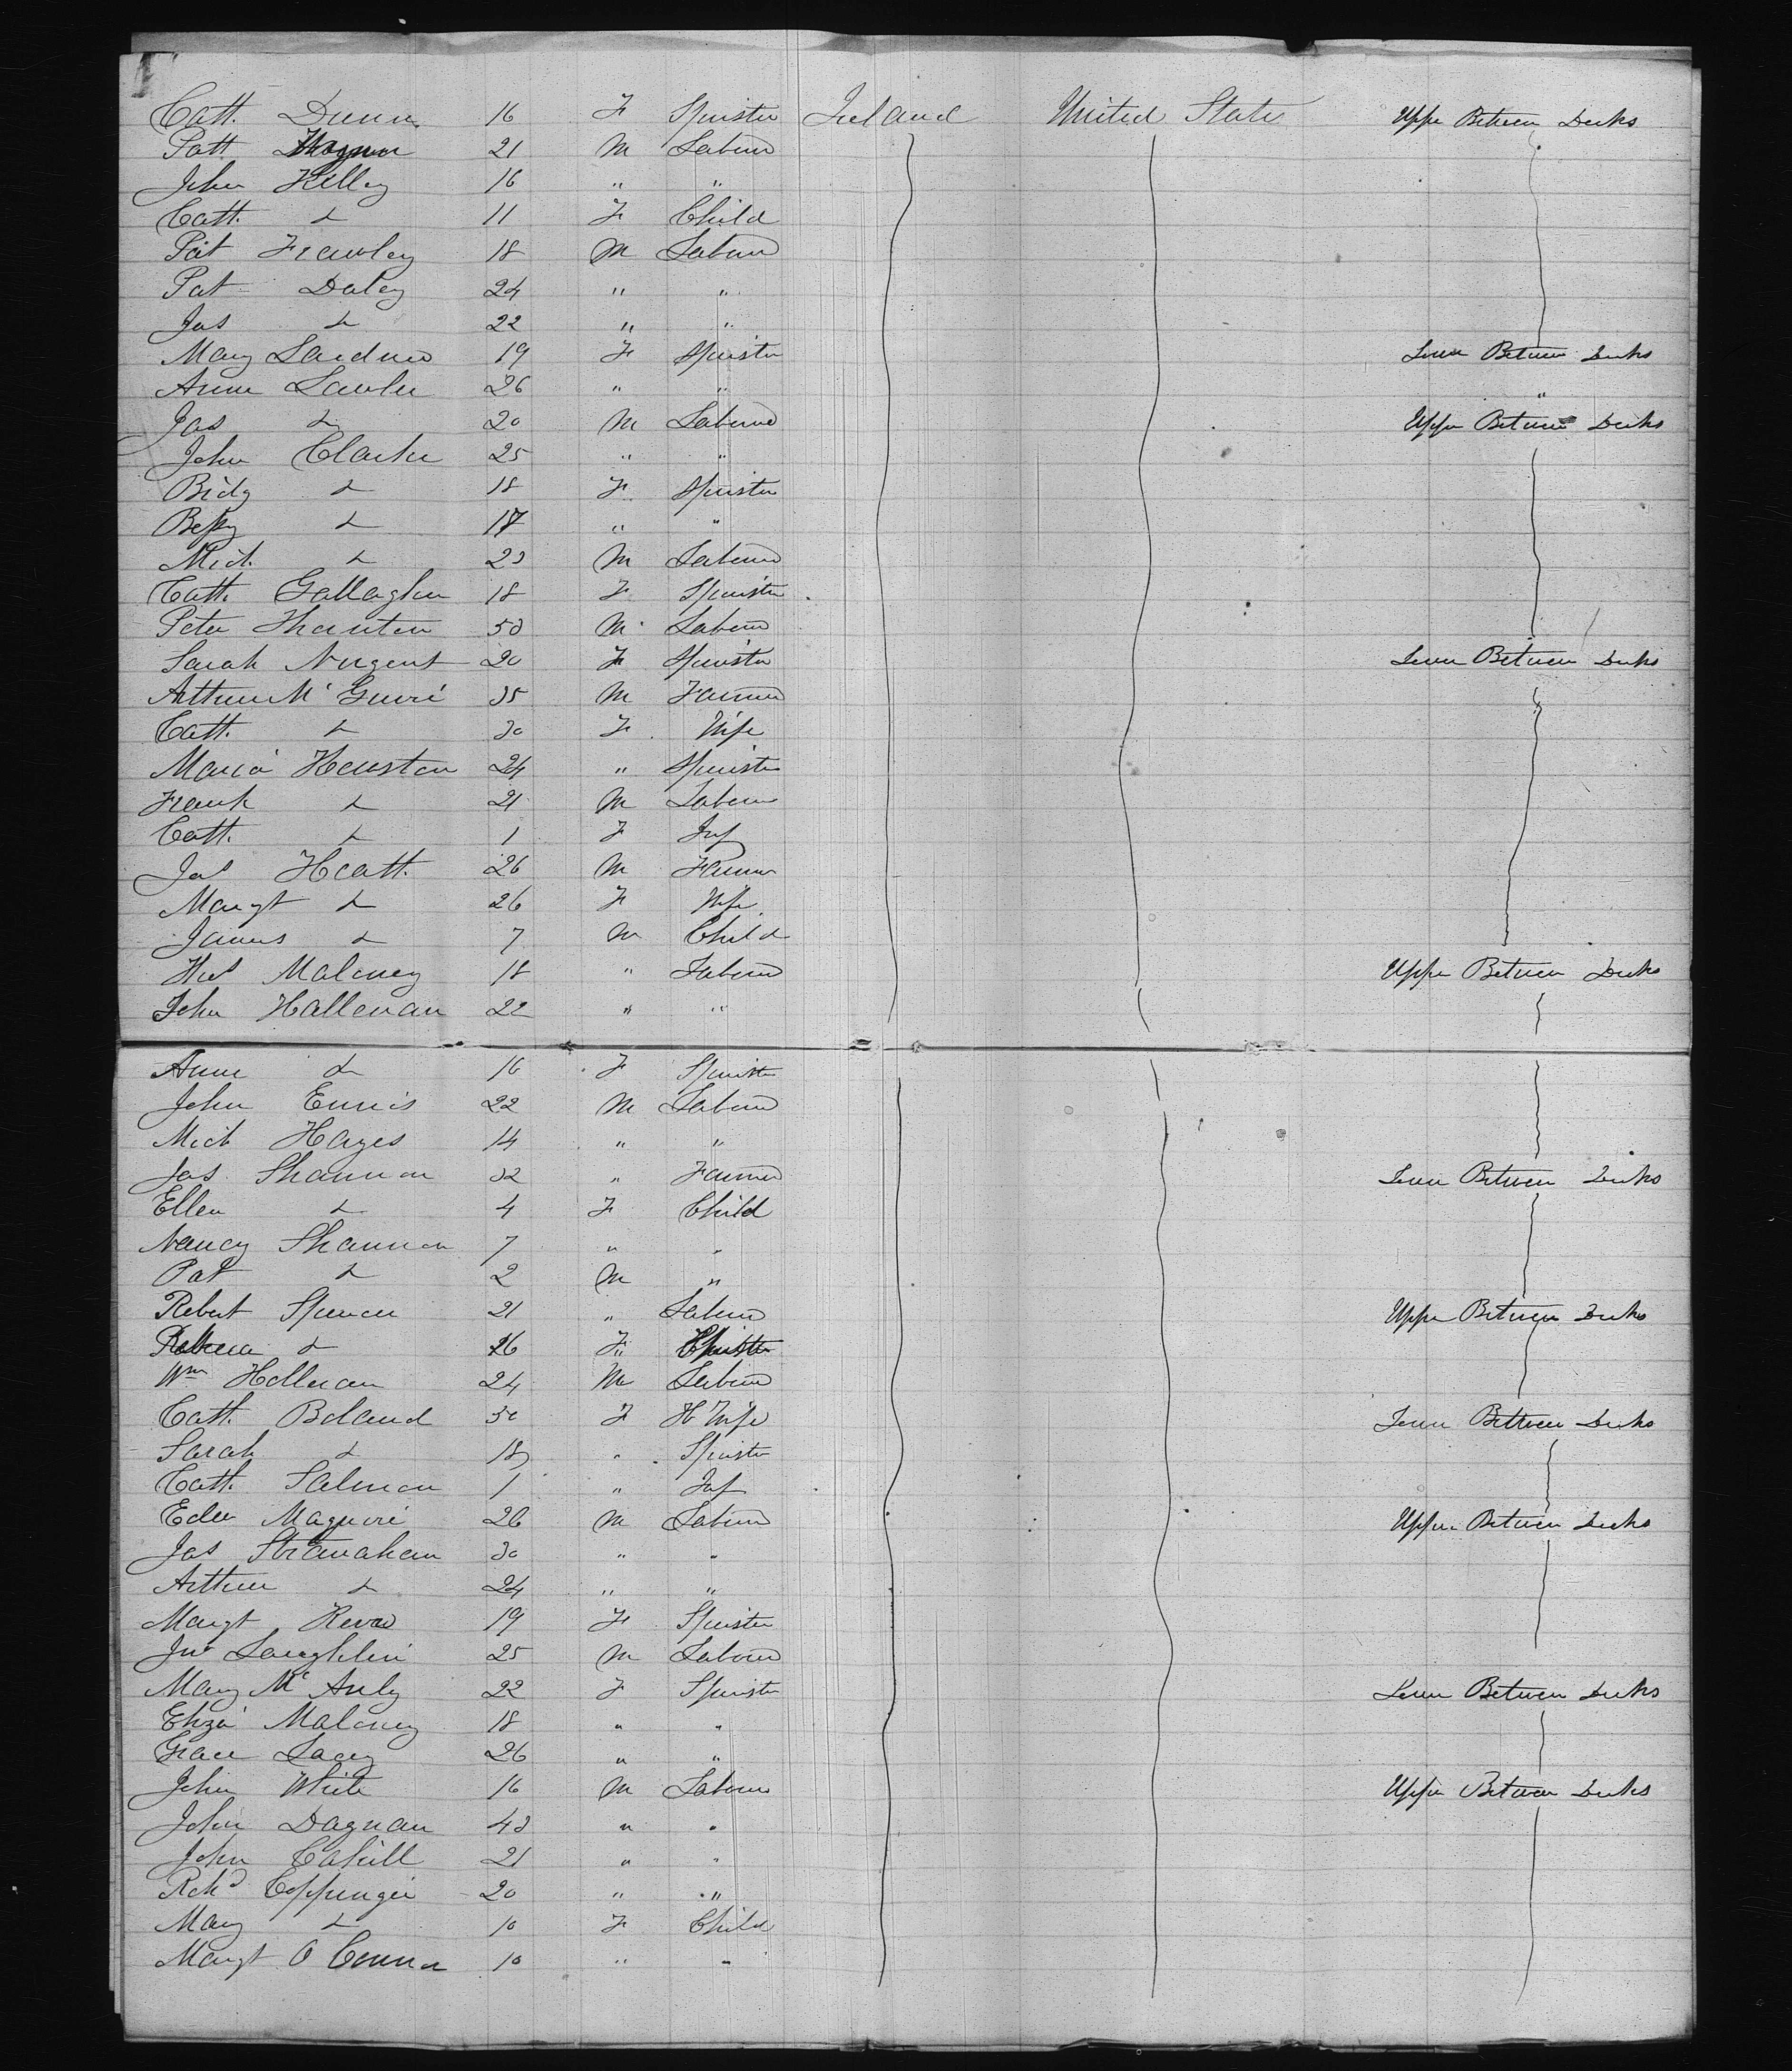 Cath. Dunn 16 F Spinster Ireland United State Upper Between Decks
Patt 21 M Labourer
John Kelley 16 " "
Cath. do 11 F Child
Pat Frawley 18 M Labourer
Pat Daley 24 " "
Jas do 22 " "
Mary Lardner 19 F Spinster Lower Between Decks
Anne Lawler 26 " " "
Jas do 20 M Labourer Upper Between Decks
John Clarke 25 " "
Bidy do 18 F Spinster
Bessy do 17 " "
Mich. do 23 M Labourer
Cath. Gallagher 18 F Spinster
Peter Thornton 50 M Labourer
Sarah Nugent 20 F Spinster Lower Between Decks
Arthur McGuire 35 M Farmer
Cath. do 30 F Wife
Maria Houston 24 " Spinster
Frank do 21 M Labourer
Cath. do 1 F Inf
Jas Heath 26 M Farmer
Margt do 26 F Wife
James do 7 M Child
Maloney 18 " Labourer Upper Between Decks
John Halleran 22 " "
Anne do 16 F Spinster
John Ennis 22 M Labourer
Mich Hayes 14 " "
Jas Shannon 32 " Farmer Lower Between Decks
Ellen do 4 F Child
Nancy Shannon 7 " "
Pat do 2 M "
Robert Spencer 21 " Labourer Upper Between Decks
Rebecca do 26 F Spinster
Wm Holleran 24 M Labourer
Cath. Boland 50 F H Wife Lower Between Decks
Sarah do 18 " Spinster
Cath. Salmon 1 " Inf
Edw Maguire 26 M Labourer Upper Between Decks
Jas Stranaham 30 " "
Arthur do 24 " "
Margt 19 F Spinster
Jno Laughlin 25 M Labourer
Mary Mc Anly 22 F Spinster Lower Between Decks
Eliza Maloney 18 " "
Grace Lacey 26 " "
John White 16 M Labourer Upper Between Decks
John Dagnan 43 " "
John Cahill 21 " "
Rchd Coppinger 20 " "
Mary do 10 F Child
Margt O Connor 10 " "